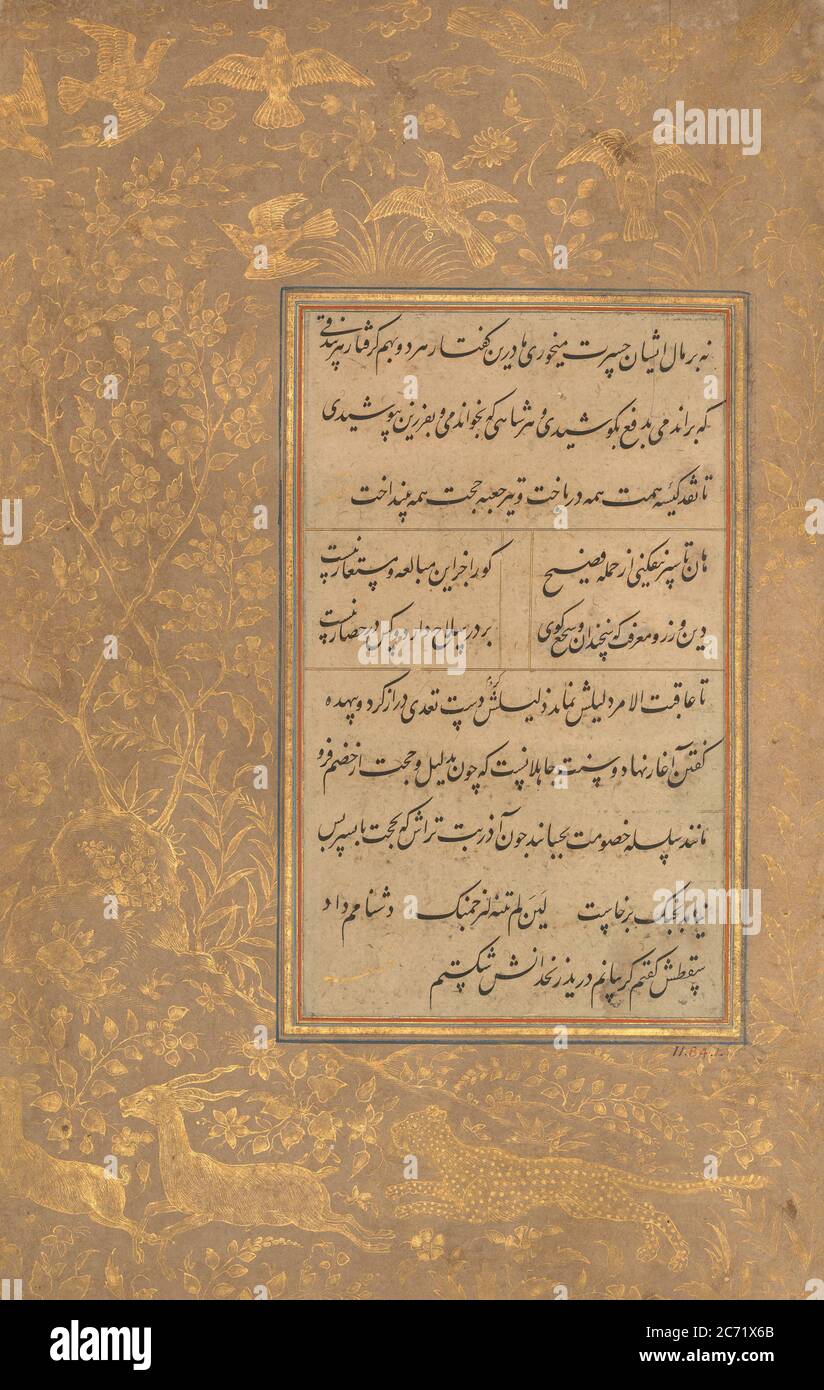 نه بر مال ایشان حسرت میخوری ما درین گفتار هر دو بهم گرفتار هر بیدقی
که براندمی بدفع بکوشیدی و هر شاهی که بخواندمی و بفرزین بپوشیدی
تا نقد کیسه همت همه درباخت و تیر جعبه حجت همه بینداخت
هان تا سپر نیفکنی از حمله فصیح کو را جز این مبالغه و مستعار نیست
دین ورز و معرفت که سخندان و سجع گوی بر در سلاح دارد و کس در حصار نیست
تا عاقبت الامر دلیلش نماند ذلیلش کردم دست تعدی دراز کرد و بیهده
گفتن آغاز نهاد و سنت جاهلانست که چون بدلیل و حجت از خصم فرو
مانند سلسله خصومت بجنبانند چون آذر بت تراش که بحجت با پسر بس
نیامد بجنگ برخاست لَئِن لم تنته لارجمنک دشنامم داد
سقطش گفتم گریبانم درید زنخدانش شکستم
11.84.1.
alamy
Image ID: 2C71X6B
www.alamy.com